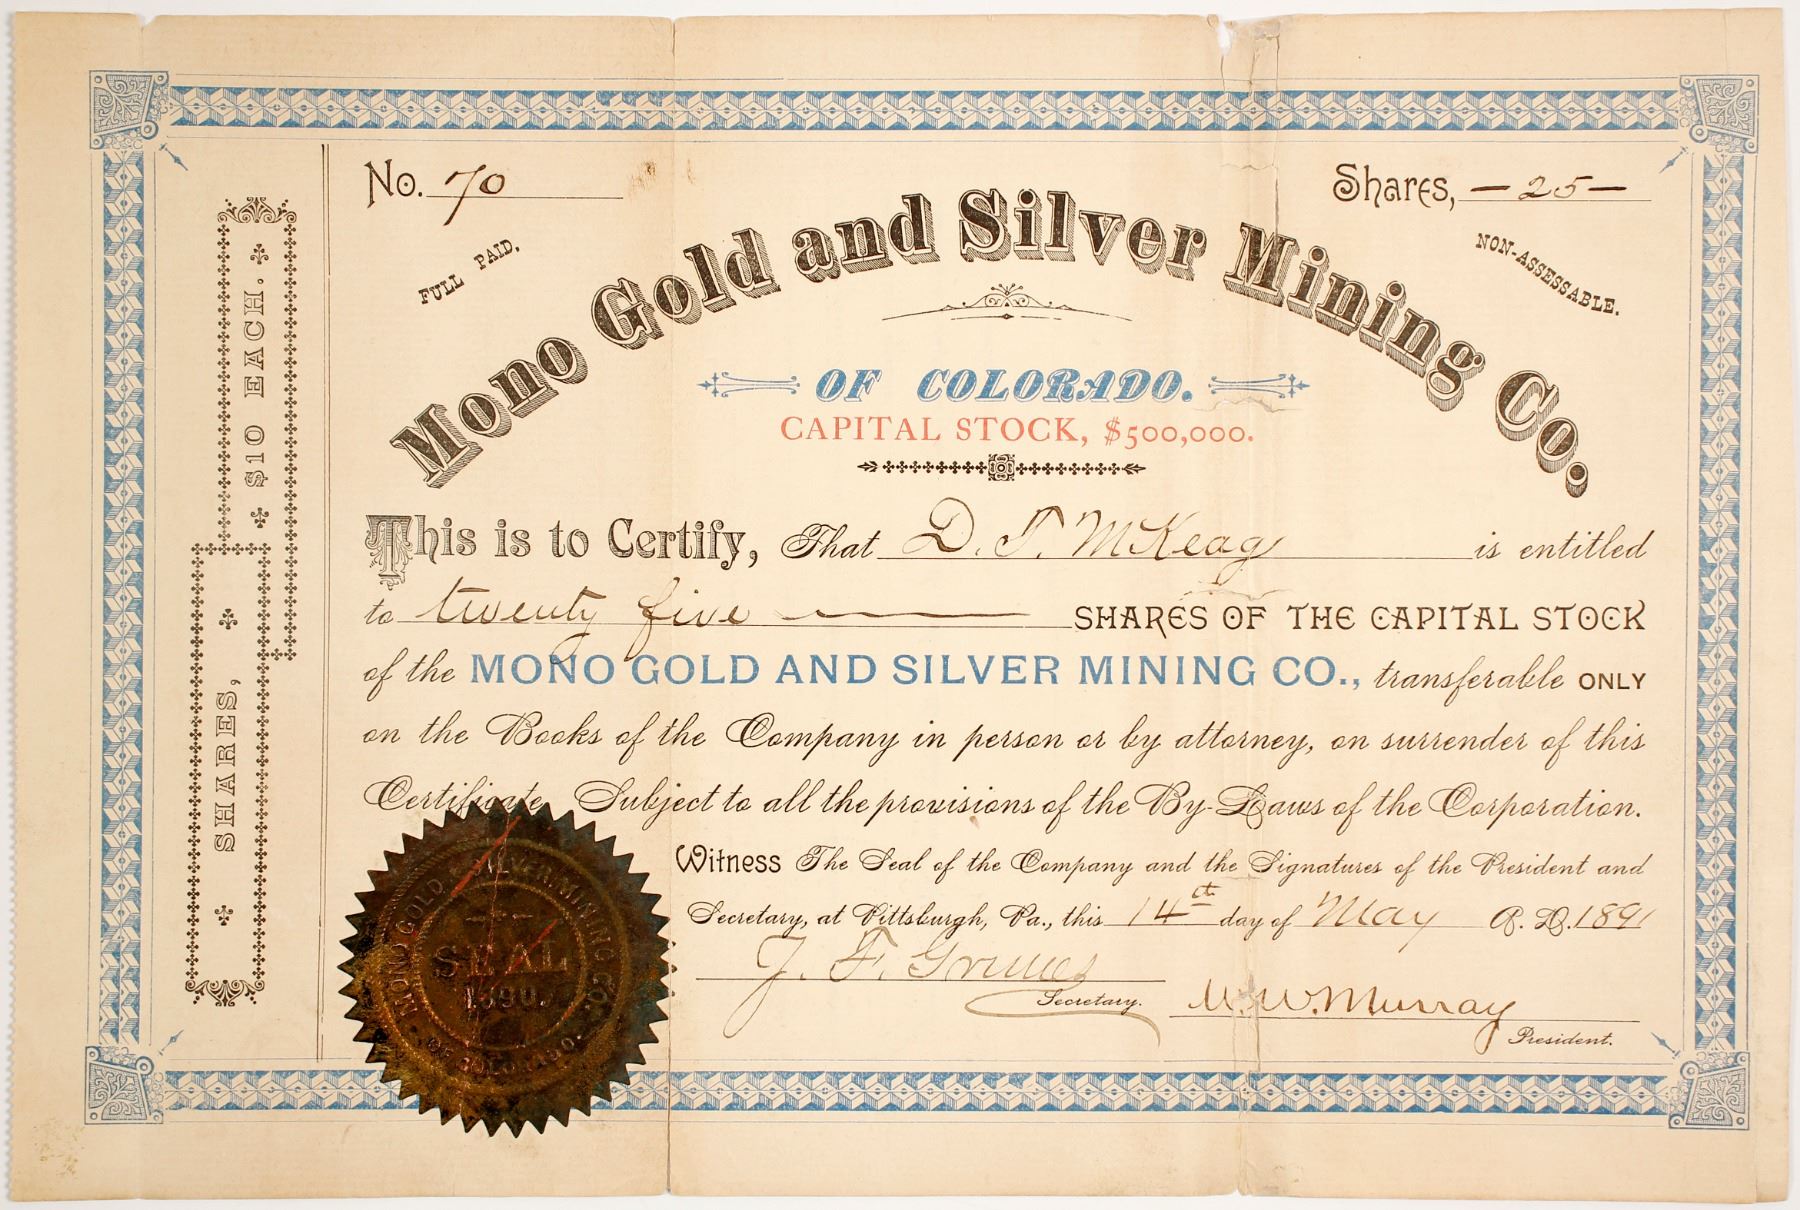 No. 70
Shares, — 25 —
FULL PAID.
NON-ASSESSABLE.
Mono Gold and Silver Mining Co.
OF COLORADO.
CAPITAL STOCK, $500,000.
SHARES, $10 EACH.
This is to Certify, That D. T. McKeag is entitled
to twenty five SHARES OF THE CAPITAL STOCK
of the MONO GOLD AND SILVER MINING CO., transferable ONLY
on the Books of the Company in person or by attorney, on surrender of this
Certificate. Subject to all the provisions of the By-Laws of the Corporation.
Witness The Seal of the Company and the Signatures of the President and
Secretary, at Pittsburgh, Pa., this 14th day of May A. D. 1891
J. F. Grimes
Secretary.
W. W. Murray
President.
MONO GOLD & SILVER MINING CO.
SEAL
1890.
OF COLORADO.